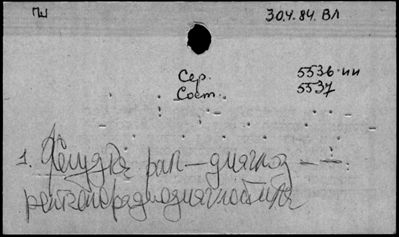 Пш 30.4.84. ВЛ
Сер. 5536-ии
Сост. 5537
1. Желудка рак — диагноз — —
рентгенорадиодиагностика